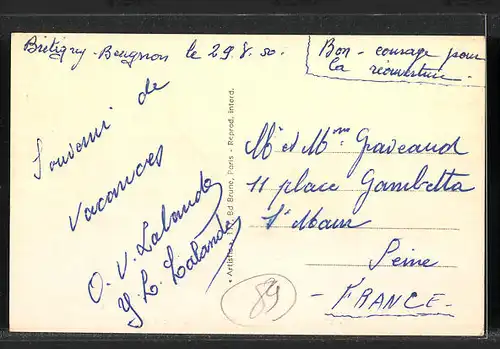 Brétigny-Beugnon le 29.8.50.
Bon - courage pour
la réouverture.
Souvenir de
Vacances
O. V. Lalande
Y. L. Lalande
Mr et Mme Graveaud
11 place Gambetta
St Maur
Seine
- FRANCE -
Bd Brune, Paris - Reprod. interd.
84